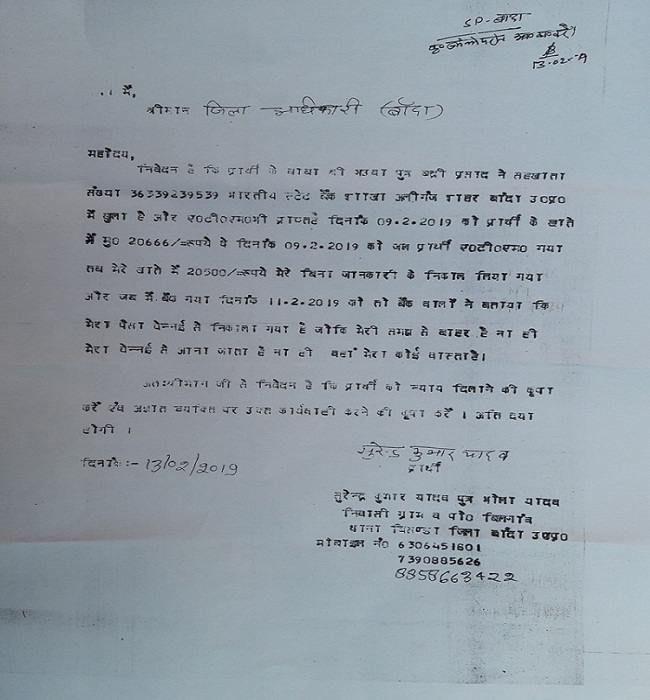 SP-बांदा
13-02-19
में,
श्रीमान जिला अधिकारी (बाँदा)
महोदय,
निवेदन है कि प्रार्थी के चाचा श्री भउवा पुत्र बद्री प्रसाद ने सहखाता
संख्या 36339239539 भारतीय स्टेट बैंक शाखा अलीगंज शहर बांदा उ०प्र०
में खुला है और ए०टी०एम०भी प्राप्तहै दिनांक 09.2.2019 को प्रार्थी के खाते
में मु० 20666/=रूपये थे दिनांक 09.2.2019 को जब प्रार्थी ए०टी०एम० गया
तब मेरे खाते में 20500/=रूपये मेरे बिना जानकारी के निकाल लिया गया
और जब मैं बैंक गया दिनांक 11-2.2019 को तो बैंक वालों ने बताया कि
मेरा पैसा चेन्नई से निकाला गया है जोकि मेरी समझ से बाहर है ना ही
मेरा चेन्नई से आना जाता है ना ही वहां मेरा कोई वास्ताहै।
अतःश्रीमान जी से निवेदन है कि प्रार्थी को न्याय दिलाने की कृपा
करें एवं अज्ञात व्यक्ति पर उक्त कार्यवाही करने की कृपा करें । अति दया
होगी ।
दिनांक:- 13/02/2019
सुरेन्द्र कुमार यादव
प्रार्थी
सुरेन्द्र कुमार यादव पुत्र भोला यादव
निवासी ग्राम व पो० बिलगांव
थाना बिसण्डा जिला बाँदा उ०प्र०
मोबाइल नं० 6306451801
7390885626
8858663422